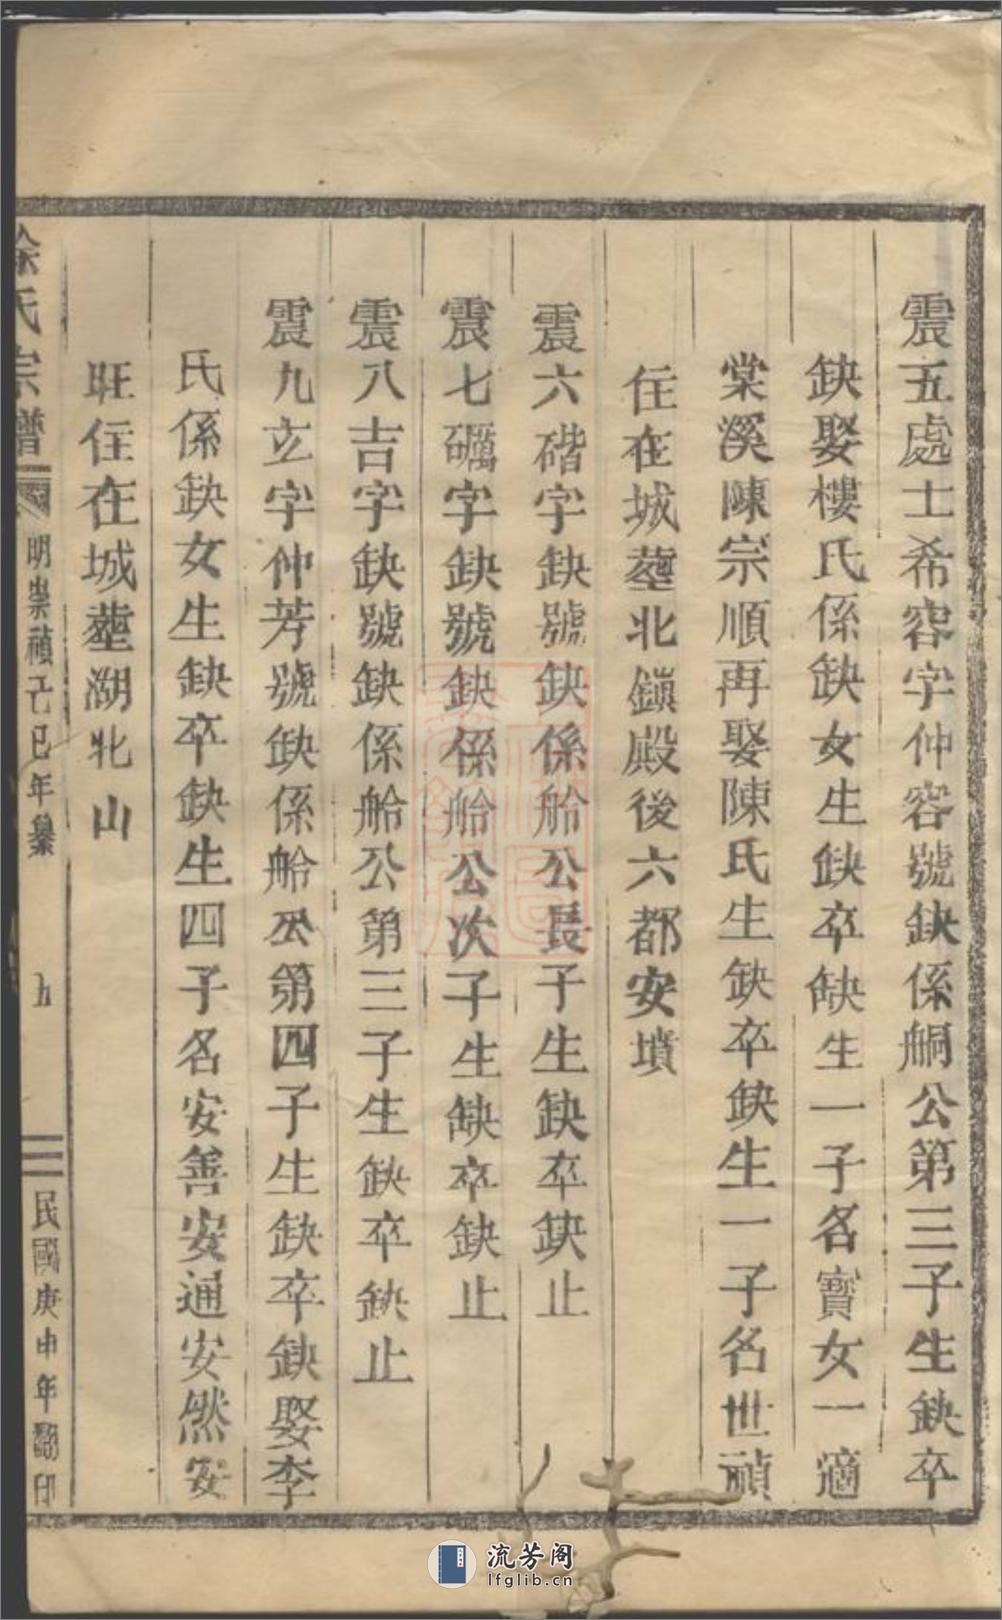 震五處士希容字仲容號缺係舸公第三子生缺卒
缺娶樓氏係缺女生缺卒缺生一子名寳女一適
棠溪陳宗順再娶陳氏生缺卒缺生一子名世禎
住在城塟北鎮殿後六都安墳
震六碏字缺號缺係舲公長子生缺卒缺止
震七礪字缺號缺係舲公次子生缺卒缺止
震八吉字缺號缺係舲公第三子生缺卒缺止
震九玄字仲芳號缺係舲公第四子生缺卒缺娶李
氏係缺女生缺卒缺生四子名安善安通安然安
旺住在城塟湖北山
徐氏宗譜 明崇禎己巳年纂 九 民國庚申年翻印
流芳阁
lfglib.cn